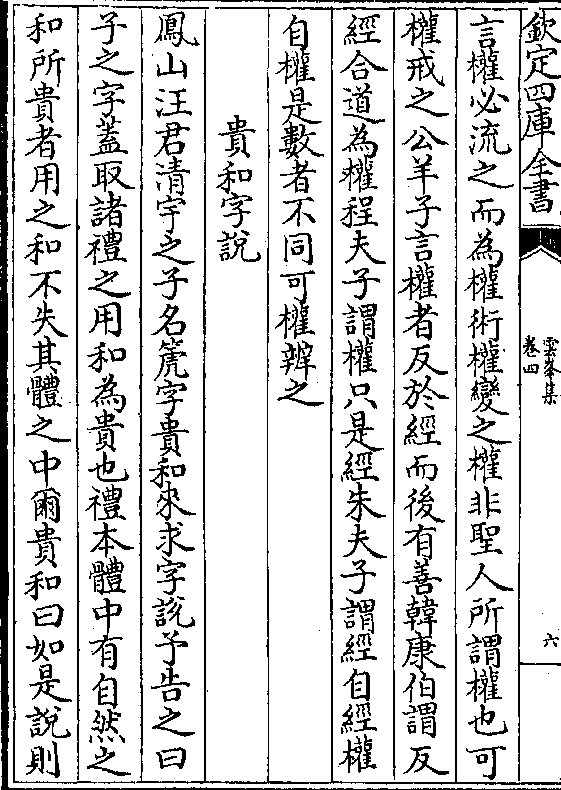 欽定四庫全書
雲峯集
卷四
六
言權必流之而為權術權變之權非聖人所謂權也可
權戒之公羊子言權者反於經而後有善韓康伯謂反
經合道為權程夫子謂權只是經朱夫子謂經自經權
自權是數者不同可權辨之
貴和字說
鳳山汪君清宇之子名箎字貴和來求字說予告之曰
子之字蓋取諸禮之用和為貴也禮本體中有自然之
和所貴者用之和不失其體之中爾貴和曰如是說則